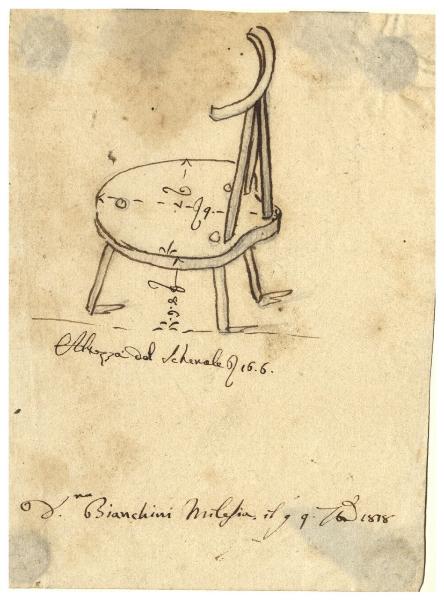 9.
9.8.6.
Altezza del Schenale 16.6.
D.na Bianchini Milesia, il g 9. 7bre 1818